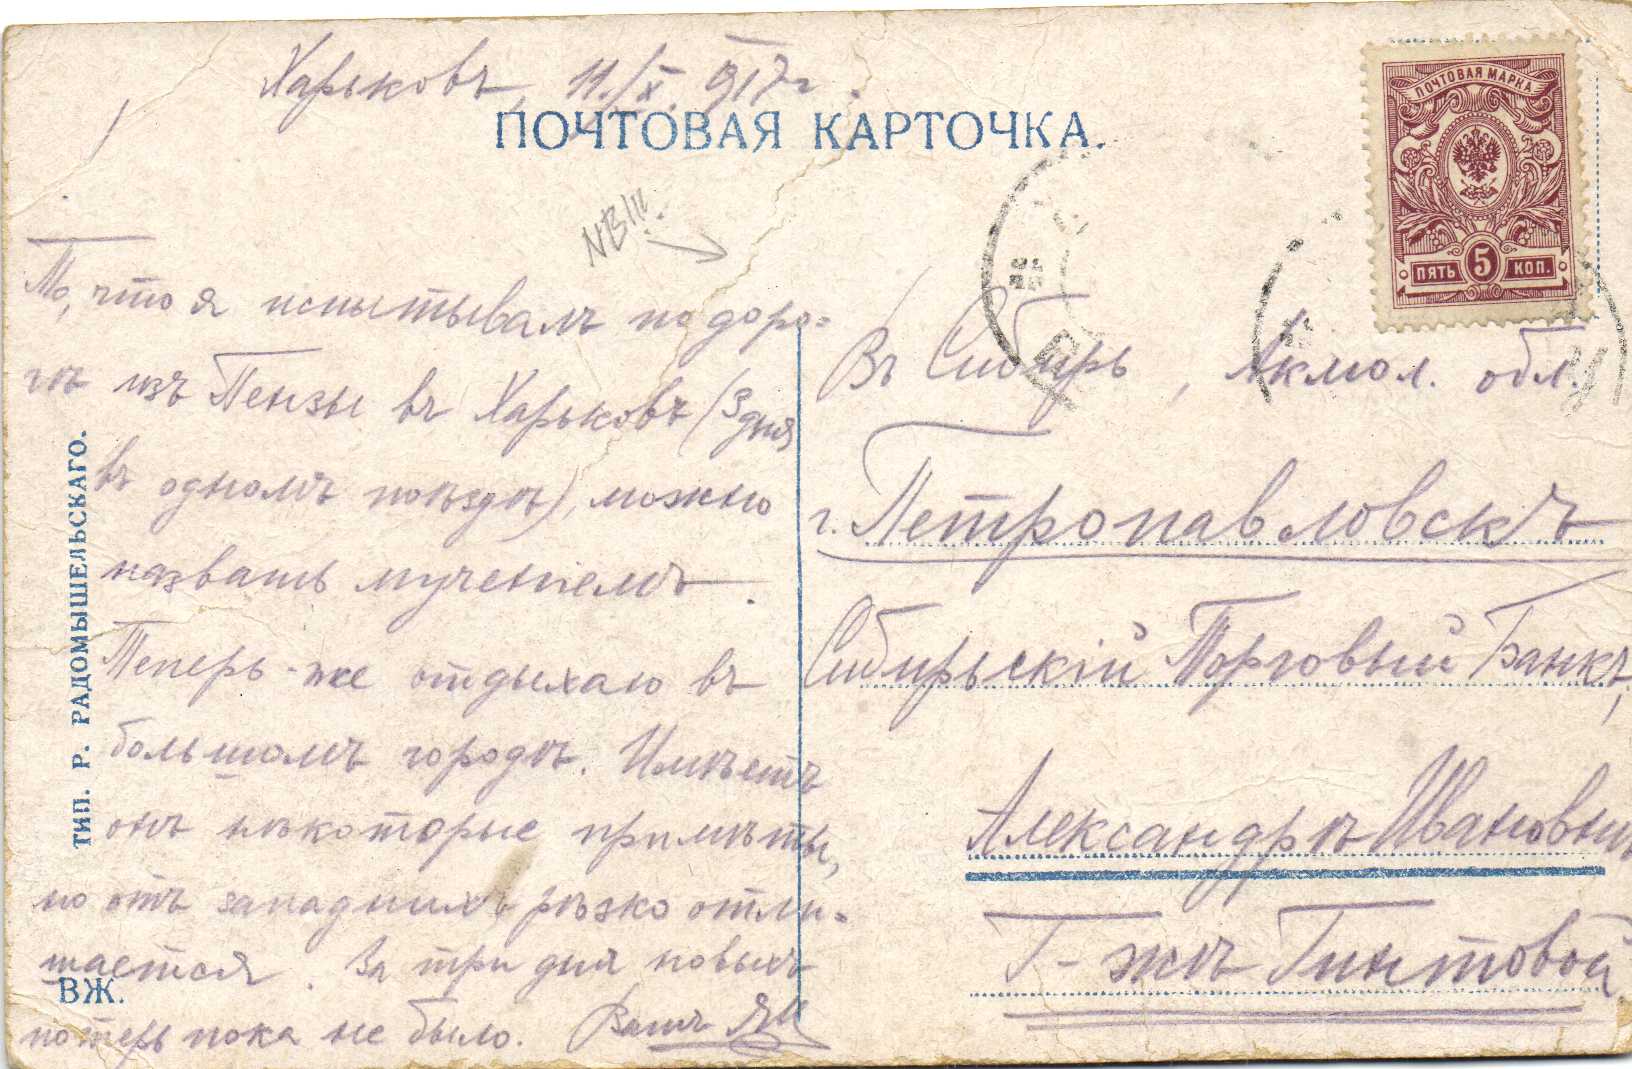 Харьковъ, 11/X 917 г.
ПОЧТОВАЯ КАРТОЧКА.
NB!!!
То, что я испытывалъ по доро-
гѣ изъ Пензы въ Харьковъ (3 дня
въ одномъ поѣздѣ), можно
назвать мученіемъ.
Теперь-же отдыхаю въ
большомъ городѣ. Имѣетъ
онъ нѣкоторые примѣты,
но отъ западныхъ рѣзко отли-
чается. За три дня новыхъ
потерь пока не было. Вашъ
ТИП. Р. РАДОМЫШЕЛЬСКАГО.
ВЖ.
ПОЧТОВАЯ МАРКА
ПЯТЬ 5 КОП.
Въ Сибирь, Акмол. обл.
г. Петропавловскъ
Сибирьскій Торговый Банкъ,
Александрѣ Ивановнѣ
Г-жѣ Гинтовой